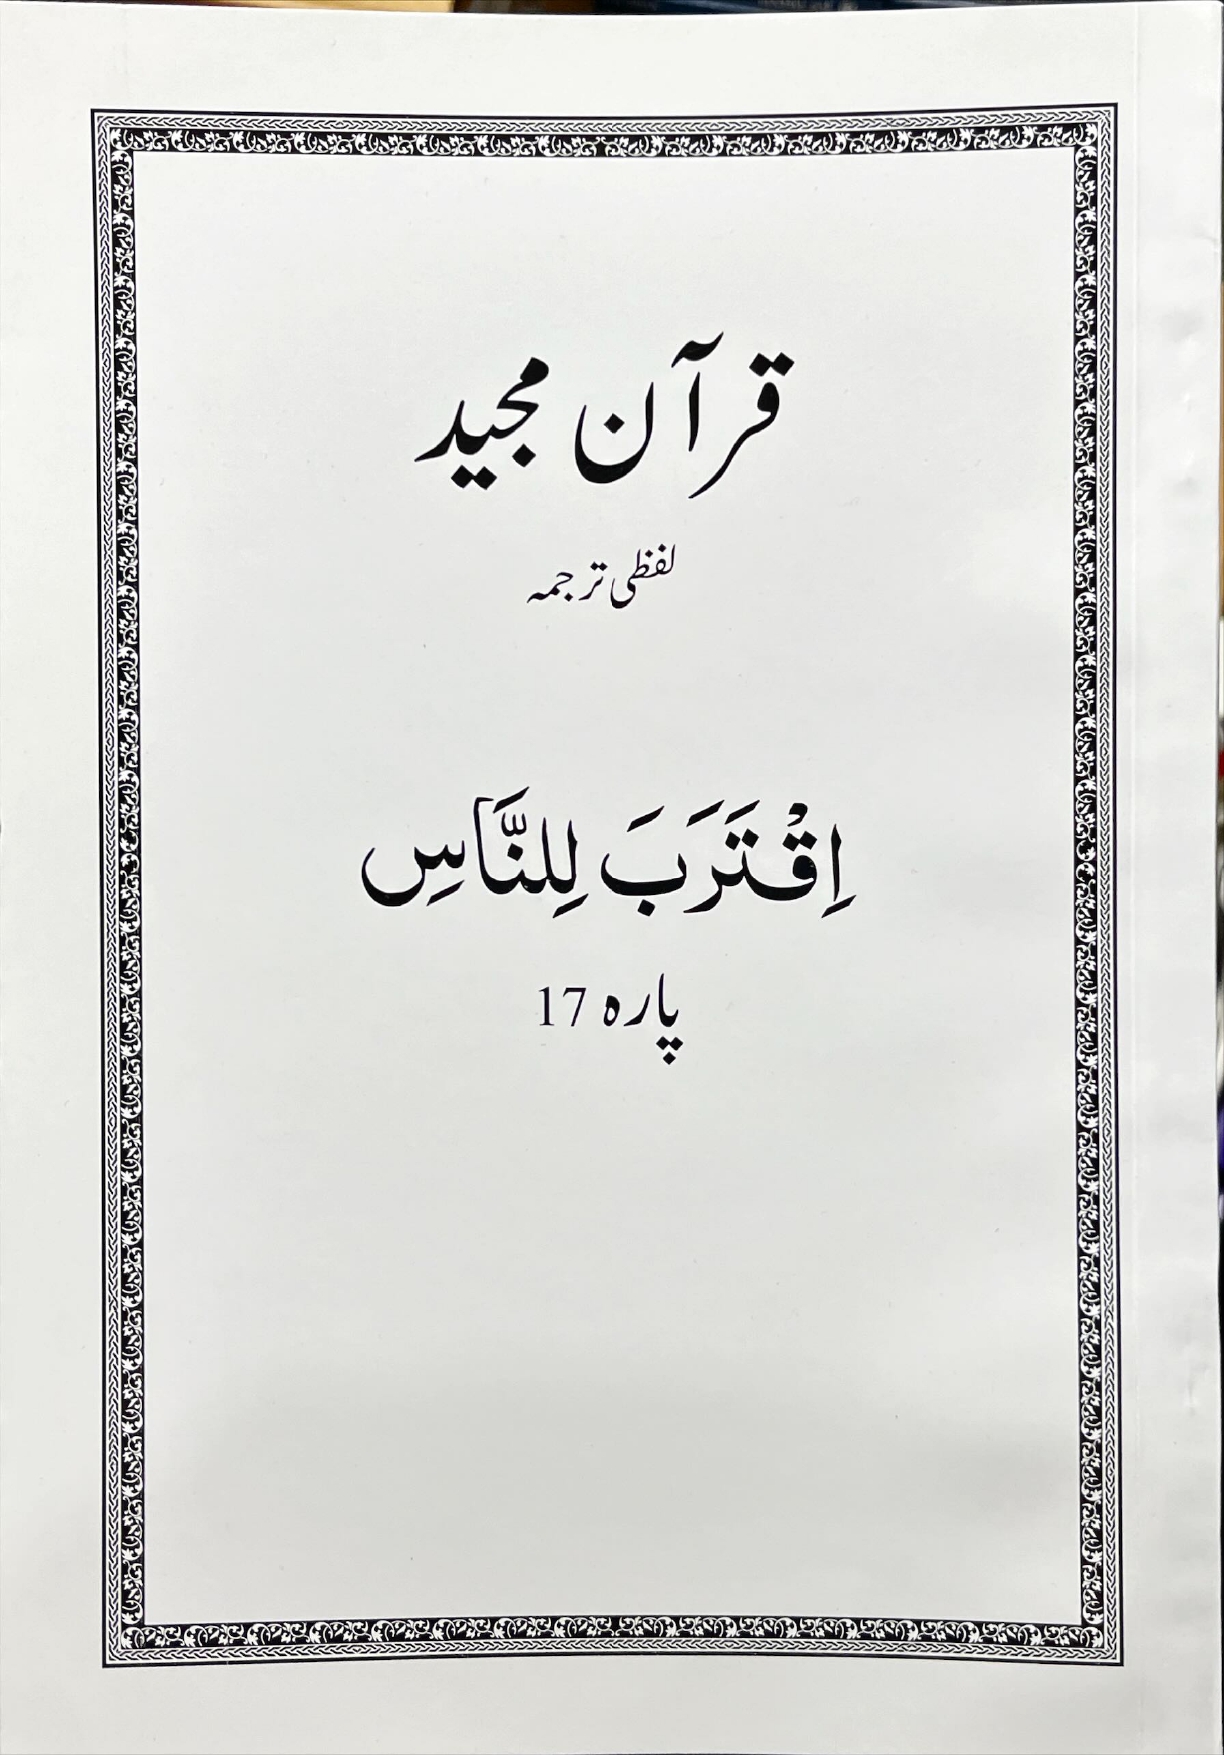 قرآن مجید
لفظی ترجمہ
اِقْتَرَبَ لِلنَّاسِ
پارہ 17